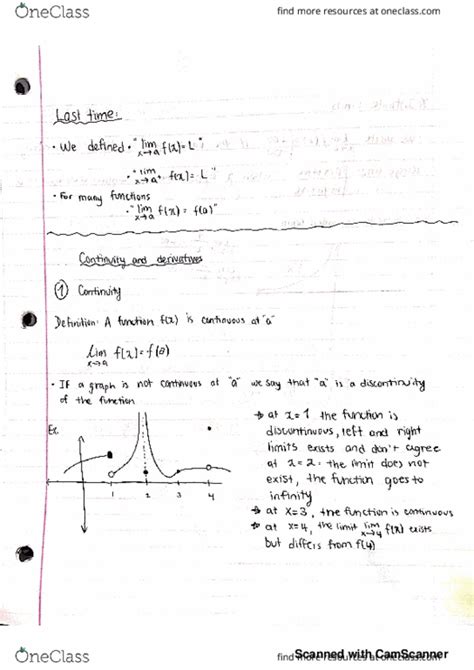 OneClass
find more resources at oneclass.com
Last time:
• We defined • "lim x→a f(x)=L"
• "lim x→a⁺ f(x)=L"
• For many functions
• "lim x→a f(x) = f(a)"
Continuity and derivatives
① Continuity
Definition: A function f(x) is continuous at "a"
lim x→a f(x)=f(a)
• If a graph is not continuous at "a" we say that "a" is a discontinuity
of the function
Ex.
1 2 3 4
→ at x=1 the function is
discontinuous, left and right
limits exists and don't agree
at x=2: the limit does not
exist, the function goes to
infinity
→ at x=3, the function is continuous
→ at x=4, the limit lim x→4 f(x) exists
but differs from f(4)
Scanned with CamScanner
OneClass
find more resources at oneclass.com